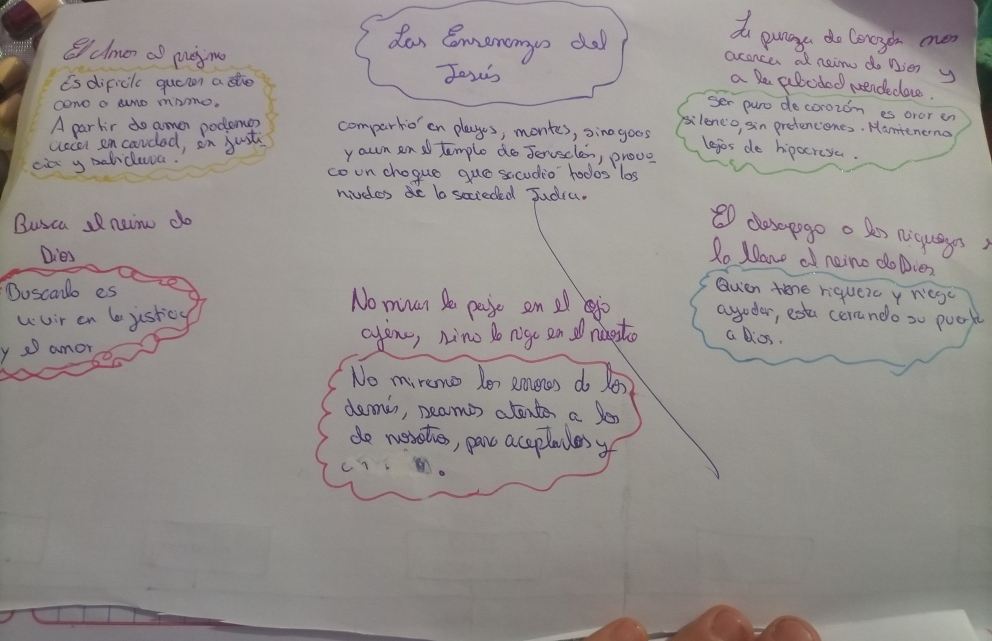 Las Ensenanzas del
Jesús
compartió en playas, montes, sinagoas
y aun en el templo de Jerusalén, provo
co un choque que sacudio todos los
niveles de la sociedad Judia.
El Amor al projimo
Es dificile querer a otro
como a uno mismo.
A partir do amor podemos
crecer en caridad, en justi
cia y sabiduria.
Busca el reino do
Dios
Buscarlo es
vivir en la justicia
y el amor
No mirar la paja en el ojo
ajeno, sino la viga en el nuestro
No miremo los errores de los
demás, seamos atentos a los
de nosotros, para aceptarlos y
La pureza de Corazón nos
acerca al reino de Dios y
a la felicidad verdadera.
Ser puro de corazón es orar en
silencio, sin pretenciones. Mantenerno
lejos de hipocresia.
El desapego a las riquezas
la llave al reino de Dios
Quien tiene riqueza y niega
ayudar, esta cerrando su puerta
a Dios.